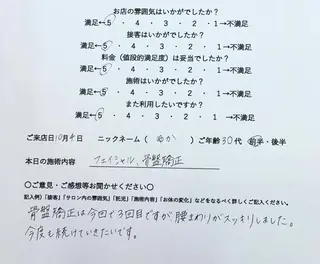 お店の雰囲気はいかがでしたか？
満足←5 ・ 4 ・ 3 ・ 2 ・ 1→不満足
接客はいかがでしたか？
満足←5 ・ 4 ・ 3 ・ 2 ・ 1→不満足
料金（値段的満足度）は妥当でしたか？
満足←5 ・ 4 ・ 3 ・ 2 ・ 1→不満足
施術はいかがでしたか？
満足←5 ・ 4 ・ 3 ・ 2 ・ 1→不満足
また利用したいですか？
満足←5 ・ 4 ・ 3 ・ 2 ・ 1→不満足
ご来店日10月4日 ニックネーム（ゆか） ご年齢30代 前半・後半
本日の施術内容 フェイシャル、骨盤矯正
〇ご意見・ご感想等お聞かせください〇
記入例）「接客」「サロン内の雰囲気」「託児」「施術内容」「お体の変化」などをなるべく詳しくご記入ください。
骨盤矯正は今回で3回目ですが腰まわりがスッキリしました。
今度も続けていきたいです。